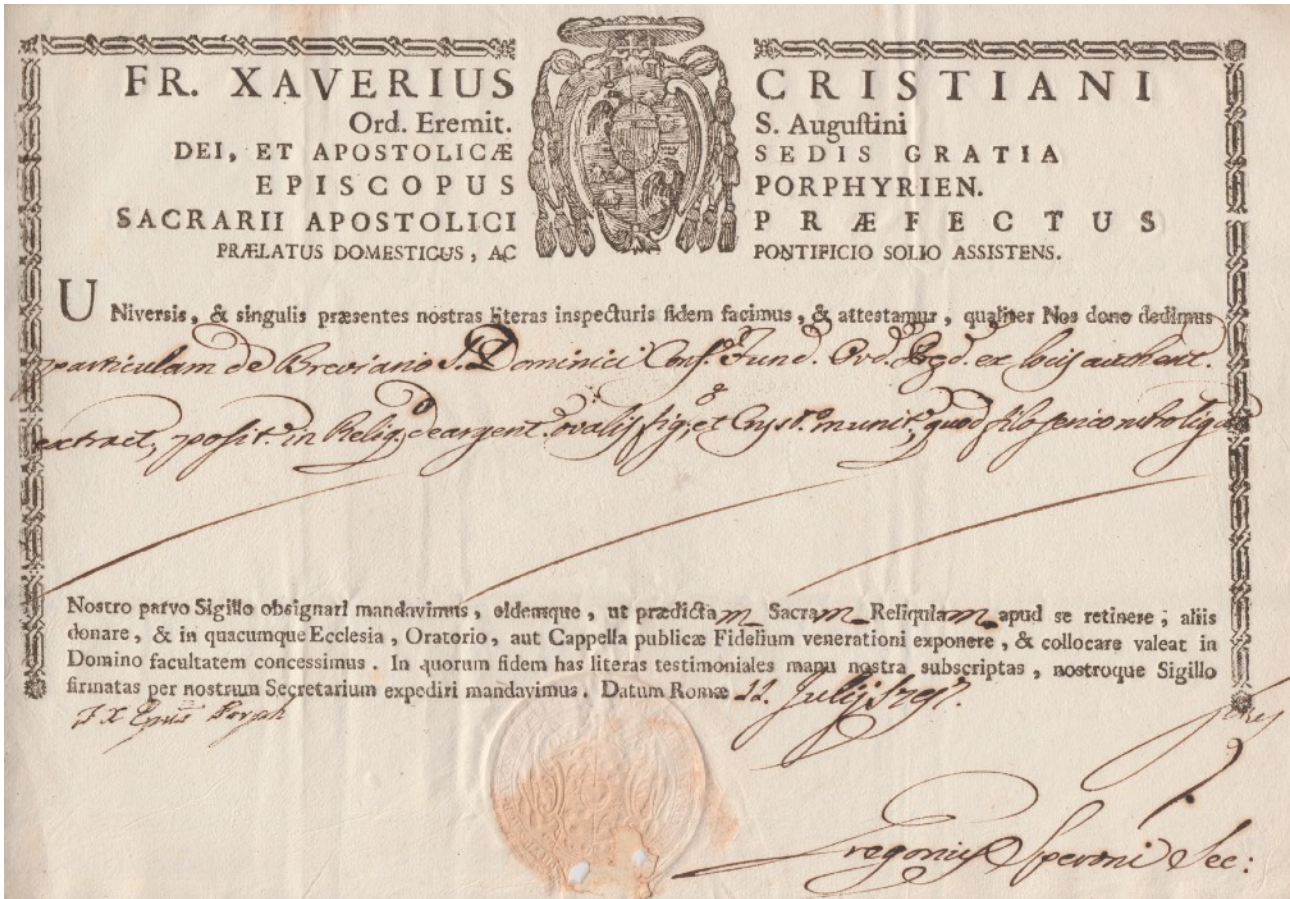 FR. XAVERIUS CRISTIANI
Ord. Eremit. S. Auguſtini
DEI, ET APOSTOLICÆ SEDIS GRATIA
EPISCOPUS PORPHYRIEN.
SACRARII APOSTOLICI PRÆFECTUS
PRÆLATUS DOMESTICUS, AC PONTIFICIO SOLIO ASSISTENS.
UNiversis, & singulis præsentes nostras literas inspecturis fidem facimus, & attestamur, qualiter Nos dono dedimus
particulam de Breviario S. Dominici Conf. Fund. Ord. ex locis authent.
extract, posit. in Reliq. de argent. ovalis fig. et Cryst. munit., quod filo serico
Nostro parvo Sigillo obsignari mandavimus, eidemque, ut prædictam Sacram Reliquiam apud se retinere; aliis
donare, & in quacumque Ecclesia, Oratorio, aut Cappella publicæ Fidelium venerationi exponere, & collocare valeat in
Domino facultatem concessimus. In quorum fidem has literas testimoniales manu nostra subscriptas, nostroque Sigillo
firmatas per nostrum Secretarium expediri mandavimus. Datum Romæ 22. Julij 1797.
F X Epūs Porph
Gregorius Speroni Sec: